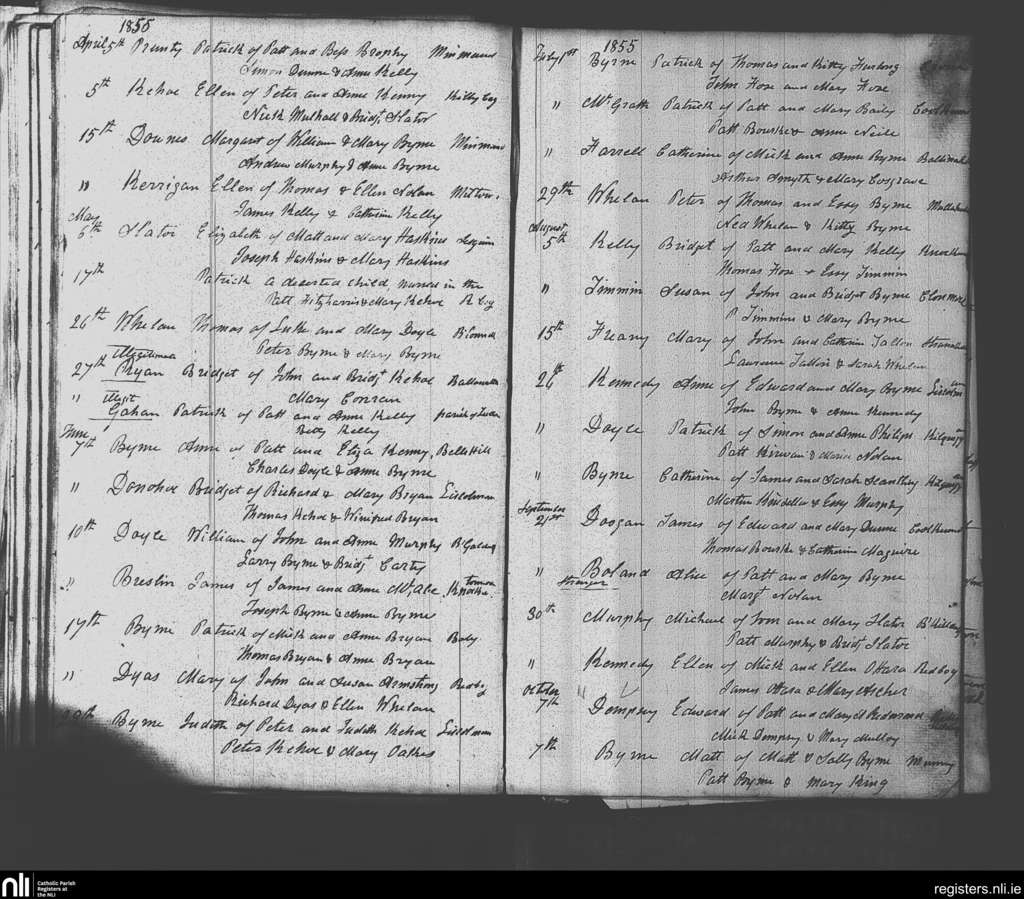 1855
April 5th Prunty Patrick of Patt and Bess Brophy Minmaud
Simon Dunne & Anne Kelly
5th Kehoe Ellen of Peter and Anne Kenny
Nick Mulhall & Bridt Slator
15th Downes Margaret of William & Mary Byrne Minmaud
Andrew Murphy & Anne Byrne
" Kerrigan Ellen of Thomas & Ellen Nolan
James Kelly & Catherine Kelly
May
6th Slator Elizabeth of Matt and Mary Haskins
Joseph Haskins & Mary Haskins
17th Patrick a deserted child, nursed in the
Patt Fitzharris & Mary Kehoe R bog
26th Whelan Thomas of Luke and Mary Doyle
Peter Byrne & Mary Byrne
Illegitimate
27th Ryan Bridget of John and Bridgt Kehoe
Mary Conran
Illegit
" Gahan Patrick of Patt and Anne Kelly parish of
Betty Kelly
June
7th Byrne Anne of Patt and Eliza Kenny, Bella Hill
Charles Doyle & Anne Byrne
" Donohoe Bridget of Richard & Mary Bryan
Thomas Kehoe & Winifred Bryan
10th Doyle William of John and Anne Murphy
Larry Byrne & Bridt Carty
" Breslin James of James and Anne McAbe
Joseph Byrne & Anne Byrne
17th Byrne Patrick of Mick and Anne Bryan
Thomas Bryan & Anne Bryan
" Dyas Mary of John and Susan Armstrong Redbog
Richard Dyas & Ellen Whelan
Byrne Judith of Peter and Judith Kehoe
Peter Kehoe & Mary Oakes
1855
July 1st Byrne Patrick of Thomas and Kitty Furlong
John Fox and Mary Fox
" McGrath Patrick of Patt and Mary Baily
Patt Bourke & Anne Neile
" Farrell Catherine of Mick and Anne Byrne
Arthur Smyth & Mary Cosgrave
29th Whelan Peter of Thomas and Essy Byrne
Ned Whelan & Kitty Byrne
August
5th Kelly Bridget of Patt and Mary Kelly
Thomas Fox & Essy Timmin
" Timmin Susan of John and Bridget Byrne
P Timmins & Mary Byrne
15th Freany Mary of John and Catherin Tallon
Laurence Tallon & Sarah Whelan
26th Kennedy Anne of Edward and Mary Byrne
John Byrne & Anne Kennedy
" Doyle Patrick of Simon and Anne Philips
Patt Kirwan & Maria Nolan
" Byrne Catherine of James and Sarah
Martin & Essy Murphy
September
21st Doogan James of Edward and Mary Dunne
Thomas Bourke & Catherine Maguire
" Boland Alice of Patt and Mary Byrne
stranger
Margt Nolan
30th Murphy Michael of Tom and Mary Slator
Patt Murphy & Bridt Slator
" Kennedy Ellen of Mick and Ellen Ohara Redbog
James Hara & Mary Archer
October
7th Dempsey Edward of Patt and Mary
Mick Dempsey & Mary Mulloy
7th Byrne Matt of Matt & Sally Byrne
Patt Byrne & Mary King
nli
Catholic Parish
Registers at
the NLI
registers.nli.ie